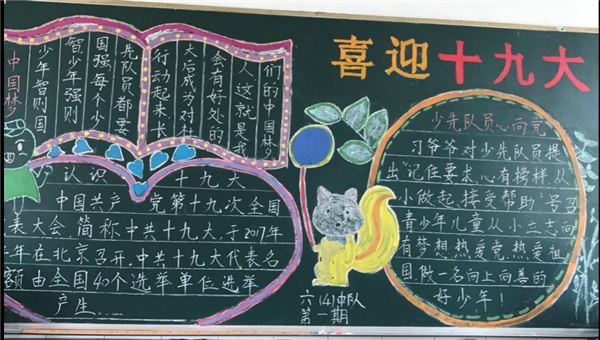 喜迎十九大
中国梦
少年智则国
智少年强则
国强每个少
先队员都要
行动起来长
大后成为对社
会有好处的
人,这就是我
们的中国梦
认识 十九大
中国共产党第十九次全国
表大会,简称中共十九大,于2017年
年在北京召开.中共十九大代表名
额由全国40个选举单位选举
产生……
少先队员心向党
习爷爷对少先队员提
出"记住要求心有榜样从
小做起接受帮助"号召
青少年儿童从小立志向
有梦想热爱党热爱祖
国做一名向上向善的
好少年!
六(4)中队
第一期